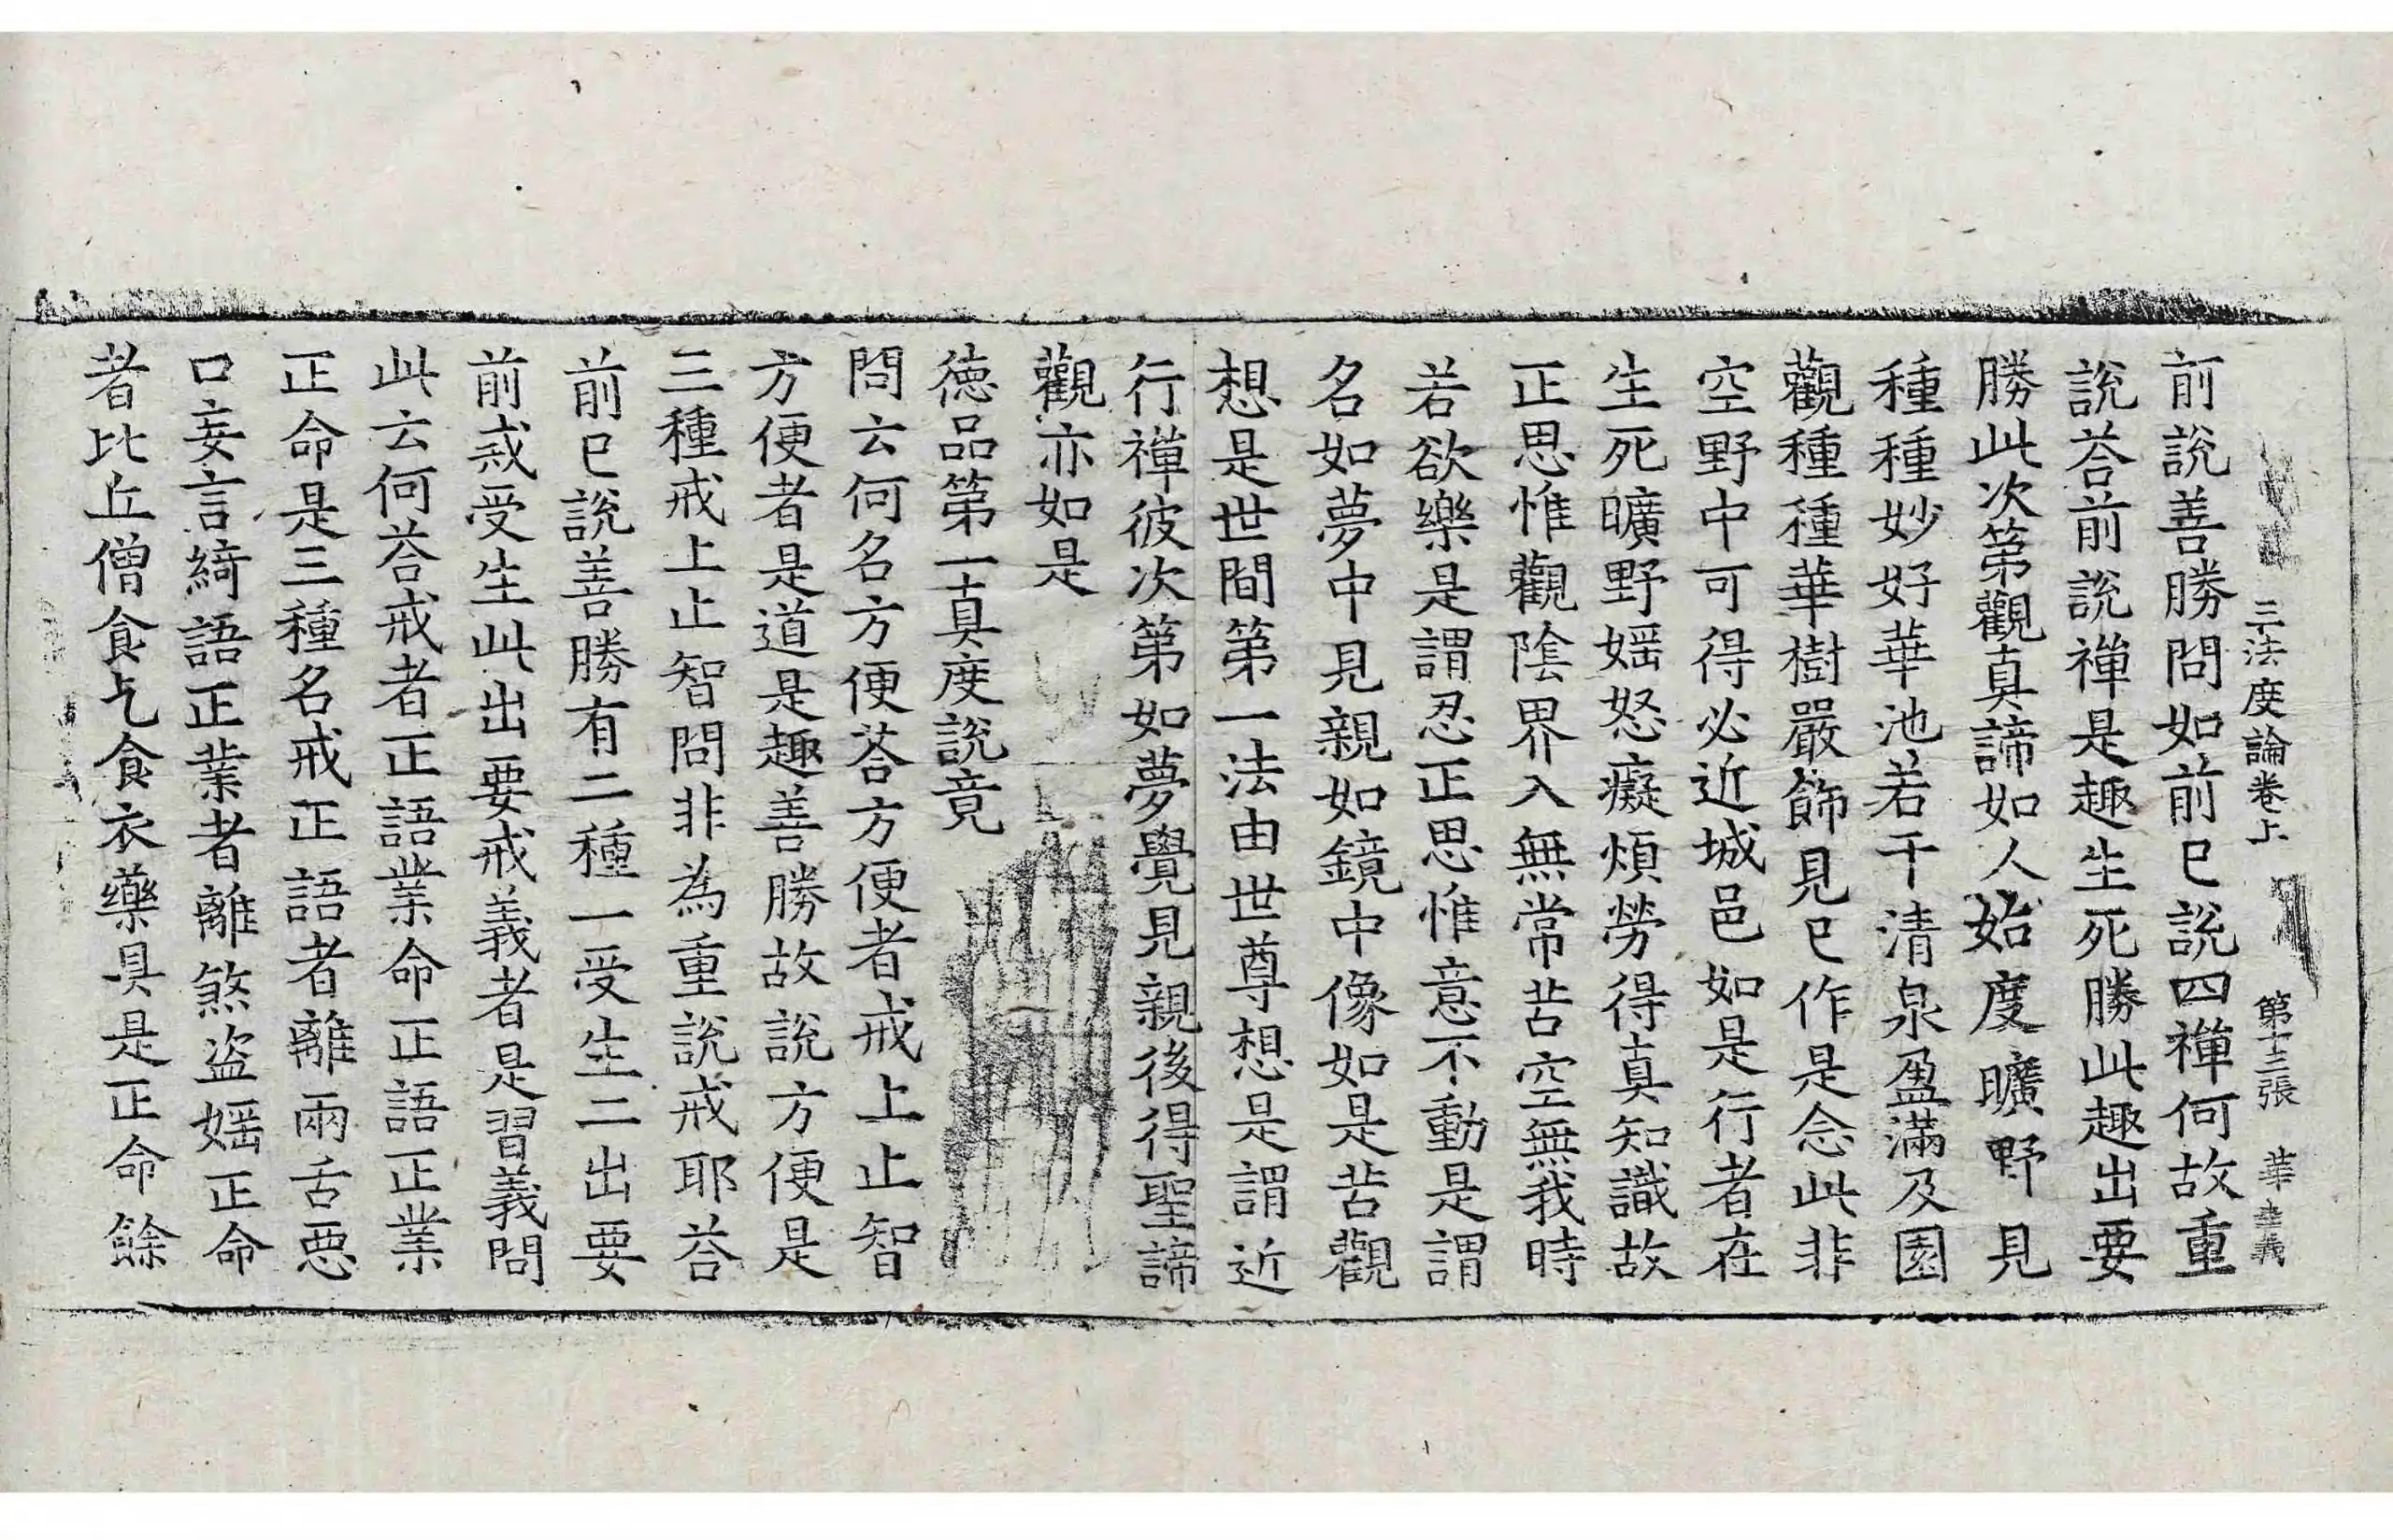 三法度論卷上 第十三張 華
前說善勝問如前已說四禪何故重
說荅前說禪是趣生死勝此趣出要
勝此次第觀真諦如人始度曠野見
種種妙好華池若干清泉盈滿及園
觀種種華樹嚴飾見已作是念此非
空野中可得必近城邑如是行者在
生死曠野婬怒癡煩勞得真知識故
正思惟觀陰界入無常苦空無我時
若欲樂是謂忍正思惟意不動是謂
名如夢中見親如鏡中像如是苦觀
想是世間第一法由世尊想是謂近
行禪彼次第如夢覺見親後得聖諦
觀亦如是
德品第一真度說竟
問云何名方便荅方便者戒上止智
方便者是道是趣善勝故說方便是
三種戒上止智問非為重說戒耶荅
前已說善勝有二種一受生二出要
前戒受生此出要戒義者是習義問
此云何荅戒者正語業命正語正業
正命是三種名戒正語者離兩舌惡
口妄言綺語正業者離煞盜婬正命
者比丘僧食乞食衣藥具是正命餘